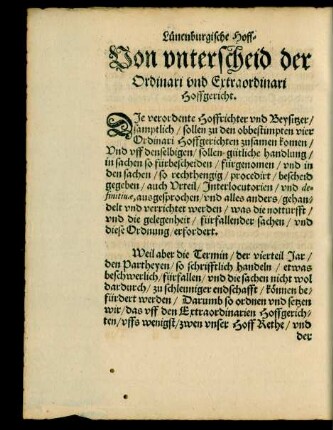 Lünenburgische Hoff-
Von vnterscheid der
Ordinari vnd Extraordinari
Hoffgericht.
DJe verordente Hoffrichter vnd Beysitzer/
samptlich / sollen zu den obbestimpten vier
Ordinari Hoffgerichten zusamen komen /
Vnd vff denselbigen / sollen gütliche handlung /
in sachen so fürbescheiden / fürgenomen / vnd in
den sachen / so rechthengig / procedirt / bescheid
gegeben / auch Vrteil / Interlocutorien / vnd de-
finitiuæ, ausgesprochen / vnd alles anders / gehan-
delt vnd verrichtet werden / was die notturfft /
vnd die gelegenheit / fürfallender sachen / vnd
diese Ordnung / erfordert.
Weil aber die Termin / der vierteil Jar /
den Partheyen / so schrifftlich handeln / etwas
beschwerlich / fürfallen / vnd die sachen nicht wol
dardurch / zu schleuniger endschafft / können be-
fürdert werden / Darumb so ordnen vnd setzen
wir / das vff den Extraordinarien Hoffgerich-
ten / vffs wenigst / zwen vnser Hoff Rethe / vnd
der